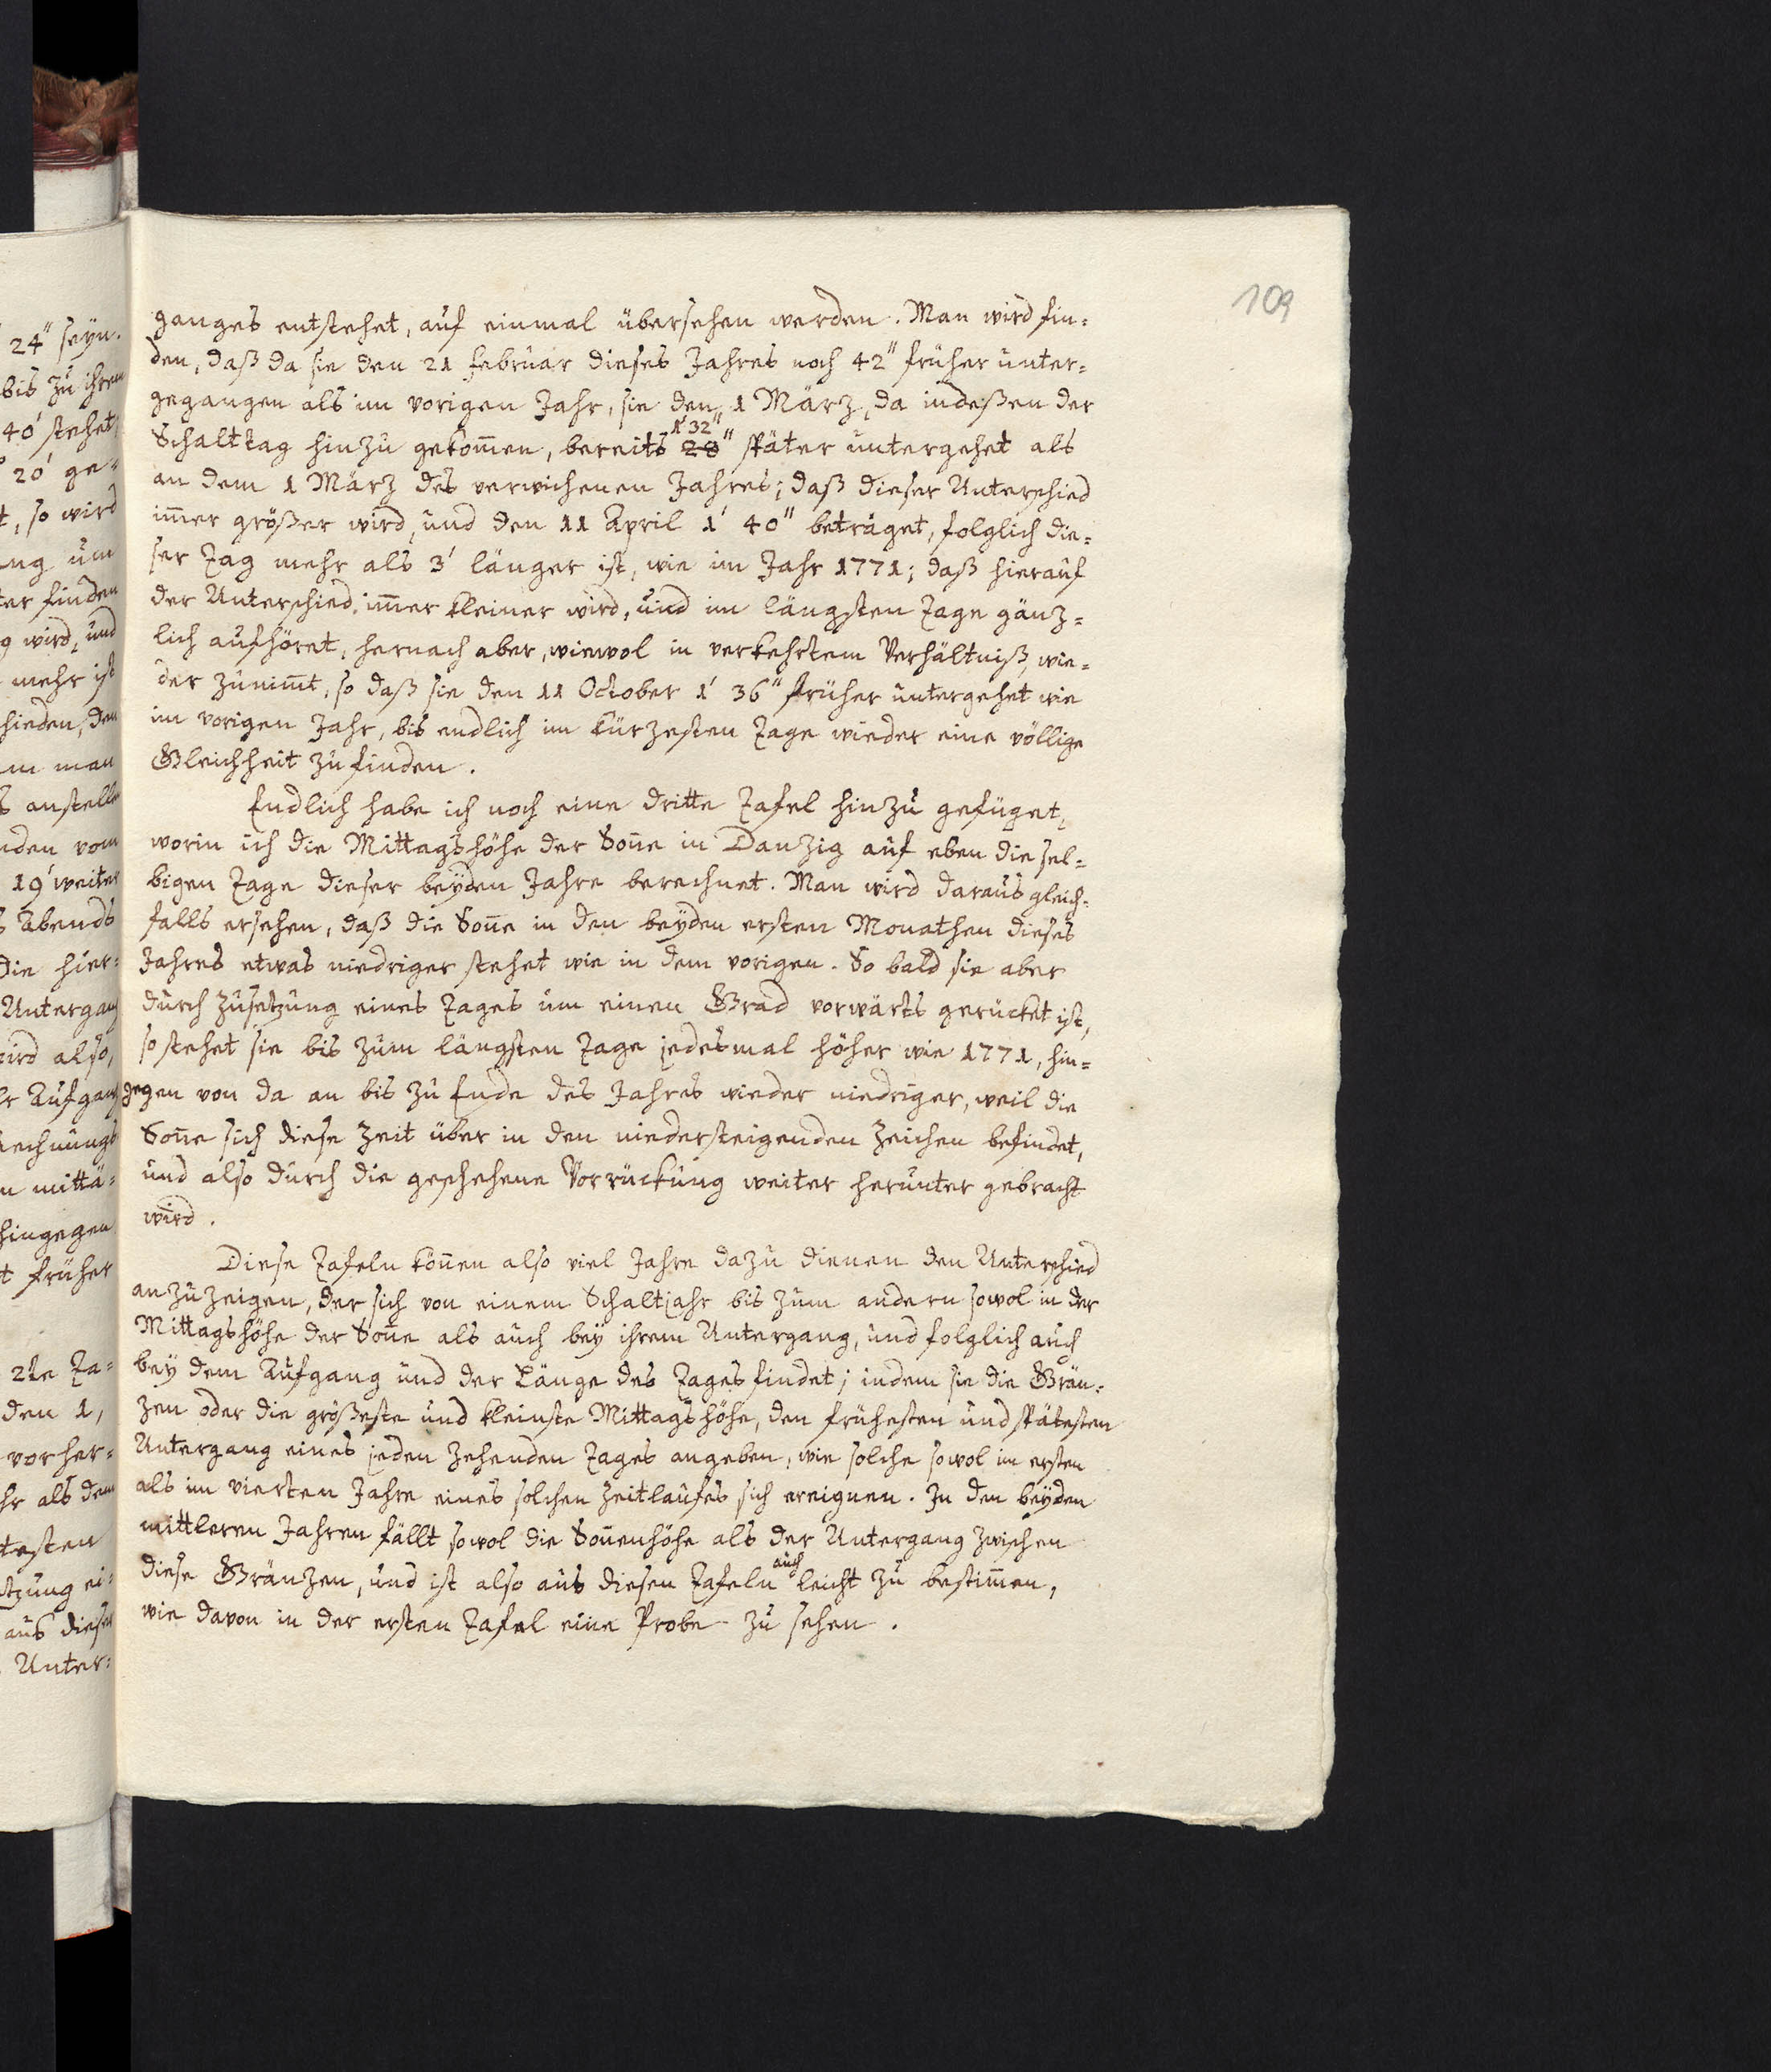 109
ganges entstehet, auf einmal übersehen werden. Man wird fin=
den, daß da sie den 21 Februar dieses Jahres noch 42" früher unter=
gegangen als im vorigen Jahr, sie den 1 März, da indeßen der
1' 32"
Schalttag hinzu gekom̄en, bereits 28" später untergehet als
an dem 1 März des verwichenen Jahres; daß dieser Unterschied
im̄er größer wird, und den 11 April 1' 40" beträget, folglich die=
ser Tag mehr als 3' länger ist, wie im Jahr 1771; daß hierauf
der Unterschied im̄er kleiner wird, und im längsten Tage gänz=
lich aufhöret, hernach aber, wiewol in verkehrtem Verhältniß, wie=
der zunim̄t, so daß sie den 11 October 1' 36" früher untergehet wie
im vorigen Jahr, bis endlich im kürzesten Tage wieder eine völlige
Gleichheit zu finden.
Endlich habe ich noch eine dritte Tafel hinzu gefüget,
worin ich die Mittagshöhe der Son̄e in Danzig auf eben diesel=
bigen Tage dieser beyden Jahre berechnet. Man wird daraus gleich=
falls ersehen, daß die Son̄e in den beyden ersten Monathen dieses
Jahres etwas niedriger stehet wie in dem vorigen. So bald sie aber
durch Zusetzung eines Tages um einen Grad vorwärts gerücket ist,
so stehet sie bis zum längsten Tage jedesmal höher wie 1771, hin=
gegen von da an bis zu Ende des Jahres wieder niedriger, weil die
Son̄e sich diese Zeit über in den niedersteigenden Zeichen befindet,
und also durch die geschehene Vorrückung weiter herunter gebracht
wird.
Diese Tafeln kön̄en also viel Jahre dazu dienen den Unterschied
anzuzeigen, der sich von einem Schaltjahr bis zum andern sowol in der
Mittagshöhe der Son̄e als auch bey ihrem Untergang, und folglich auch
bey dem Aufgang und der Länge des Tages findet; indem sie die Grän=
zen oder die größeste und kleinste Mittagshöhe, den frühesten und spätesten
Untergang eines jeden zehenden Tages angeben, wie solche sowol im ersten
als im vierten Jahre eines solchen Zeitlaufes sich ereignen. In den beyden
mittleren Jahren fällt sowol die Son̄enhöhe als der Untergang zwischen
auch
diese Gränzen, und ist also aus diesen Tafeln leicht zu bestim̄en,
wie davon in der ersten Tafel eine Probe zu sehen.
24" seyn.
bis zu ihrem
40' stehet,
20' ge=
t, so wird
ng um
ter finden
g wird, und
mehr ist
hieden, den
m man
s anstellen
nden vom
19' weiter
s Abends
die hier=
Untergang
ird also,
hr Aufgang
rechnungs
n mittä=
hingegen
t früher
2te Ta=
den 1,
vorher=
hr als dem
testen
tzung ei=
aus diesen
Unter=